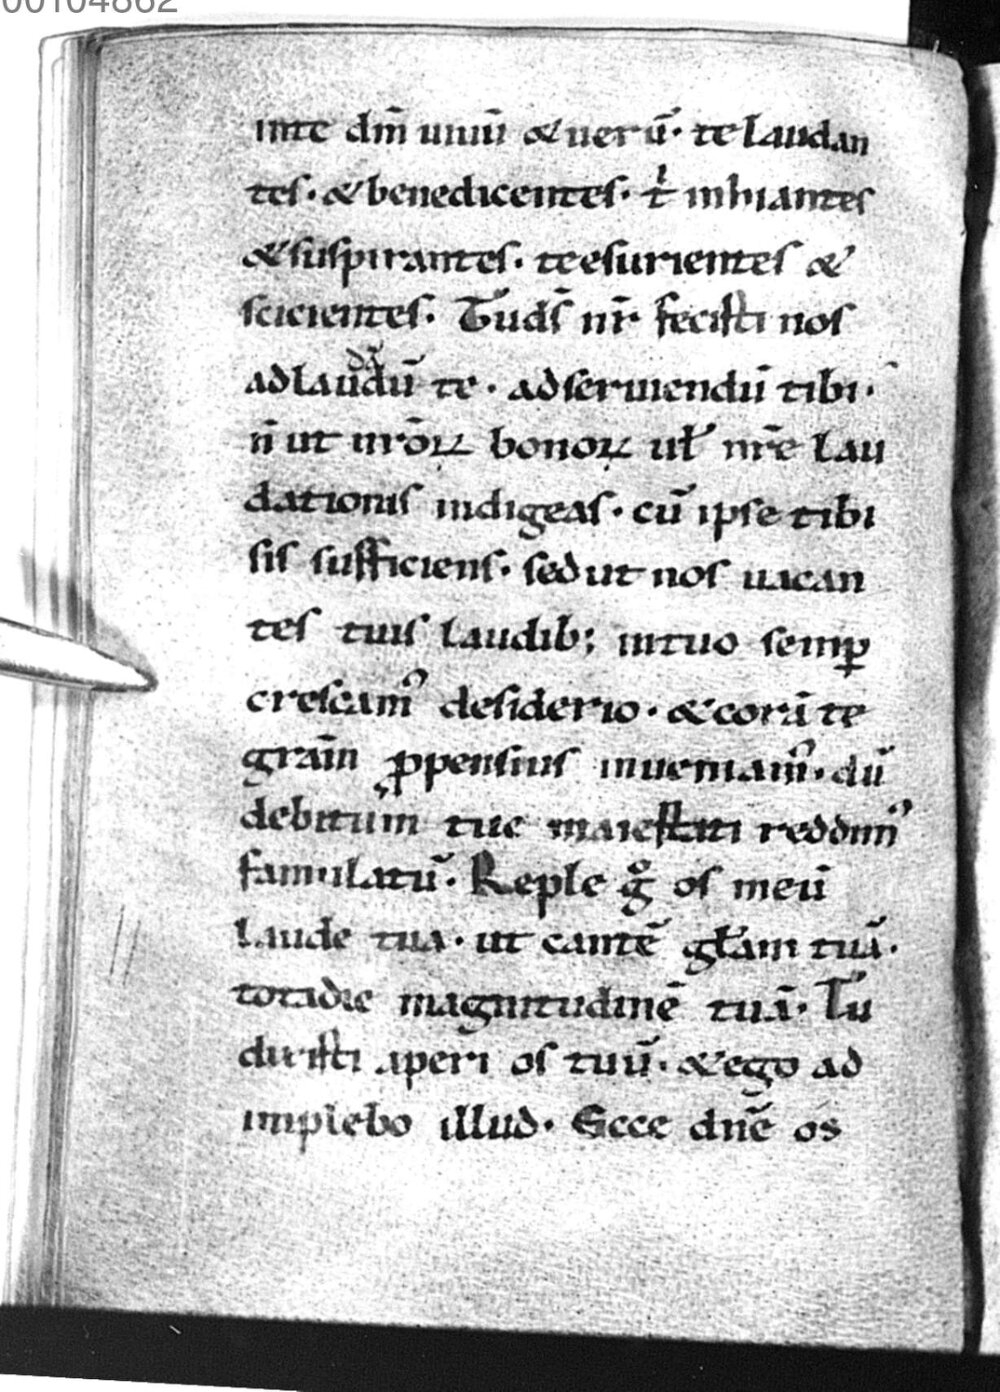 inte dm̄ uniū &uerū· te laudan
tes· &benedicentes· tⁱ inhiantes
&suspirantes· te esurientes &
scicientes· Tu ds̄ nr̄ fecisti nos
adlaudādū te· adseruiendū tibi·
n̄ ut nr̄oꝝ bonoꝝ ul̄ nr̄e lau
dationis indigeas· cū ipse tibi
sis sufficiens· sed ut nos uacan
tes tuis laudib; intuo semꝑ
crescam᾽ desiderio· &corā te
gr̄am ꝓpensius inueniam᾽· dū
debitum tue maiestati reddim᾽
famulatū· Reple gͦ os meū
laude tua· ut cantē gl̄am tuā·
totadie magnitudinē tuā· Tu
dixisti aperi os tuū· &ego ad
implebo illud· Ecce dn̄e os